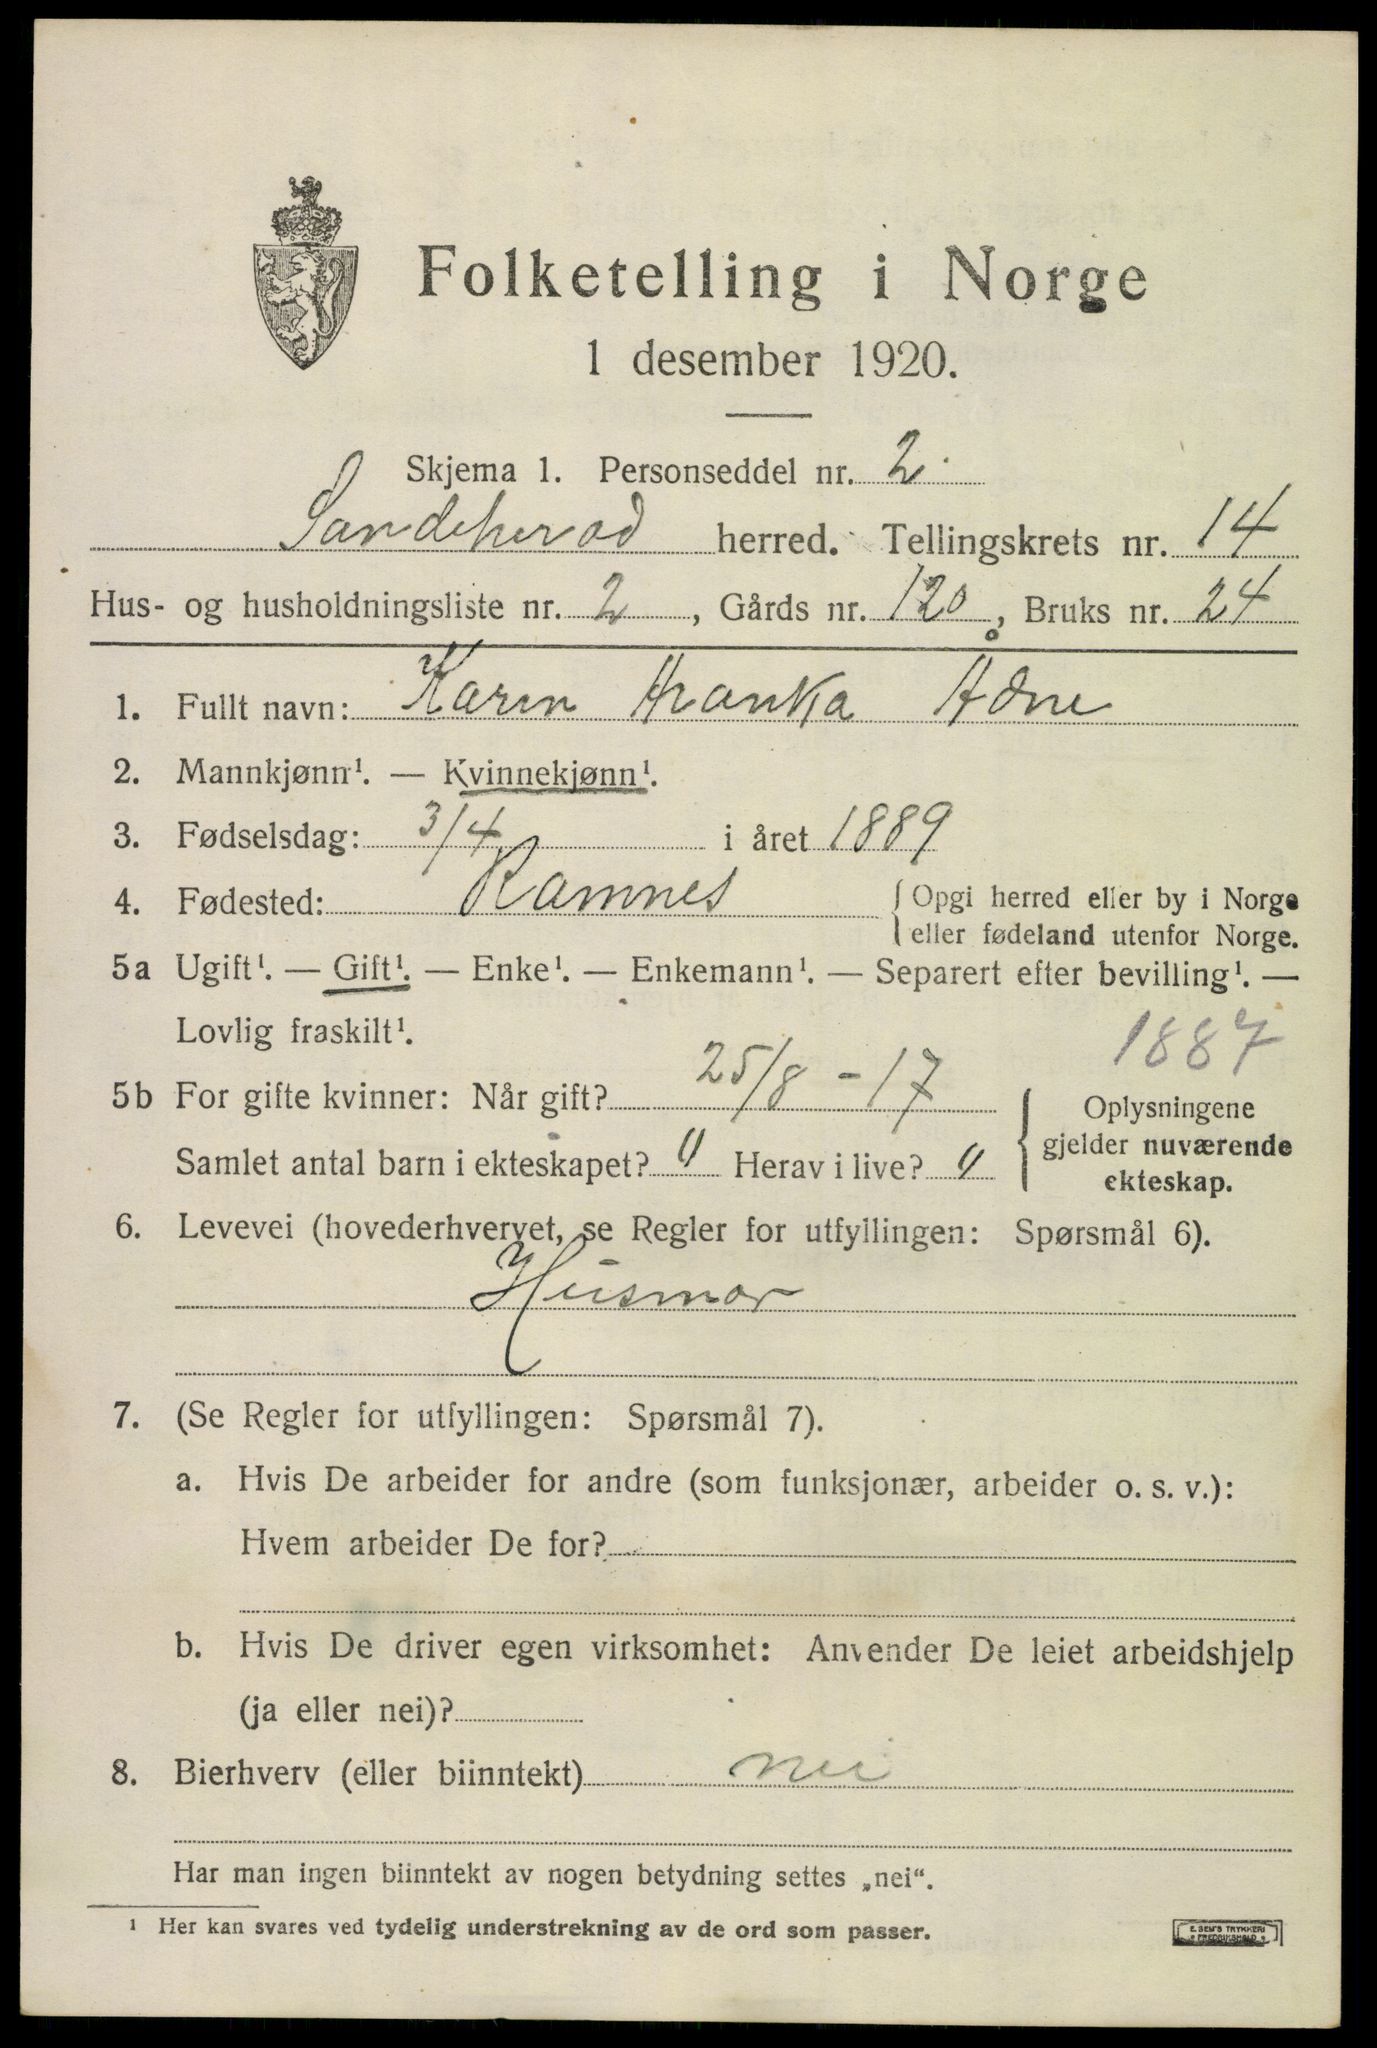 Folketelling i Norge
1 desember 1920.
Skjema 1. Personseddel nr. 2.
Sandeherad herred. Tellingskrets nr. 14
Hus- og husholdningsliste nr. 2, Gårds nr. 120, Bruks nr. 24
1. Fullt navn: Karen
2. Mannkjønn¹. — Kvinnekjønn¹.
3. Fødselsdag: 3/4 i året 1889
4. Fødested: Ramnes { Opgi herred eller by i Norge
eller fødeland utenfor Norge.
5a Ugift¹. — Gift¹. — Enke¹. — Enkemann¹. — Separert efter bevilling¹. —
Lovlig fraskilt¹.
1887
5b For gifte kvinner: Når gift? 25/8 - 17
Samlet antal barn i ekteskapet? 0 Herav i live? 0
{ Oplysningene
gjelder nuværende
ekteskap.
6. Levevei (hovederhvervet, se Regler for utfyllingen: Spørsmål 6).
Husmor
7. (Se Regler for utfyllingen: Spørsmål 7).
a. Hvis De arbeider for andre (som funksjonær, arbeider o. s. v.):
Hvem arbeider De for?
b. Hvis De driver egen virksomhet: Anvender De leiet arbeidshjelp
(ja eller nei)?
8. Bierhverv (eller biinntekt) nei
Har man ingen biinntekt av nogen betydning settes „nei“.
¹ Her kan svares ved tydelig understrekning av de ord som passer.
E. SEM'S TRYKKERI
• FREDRIKSHALD •